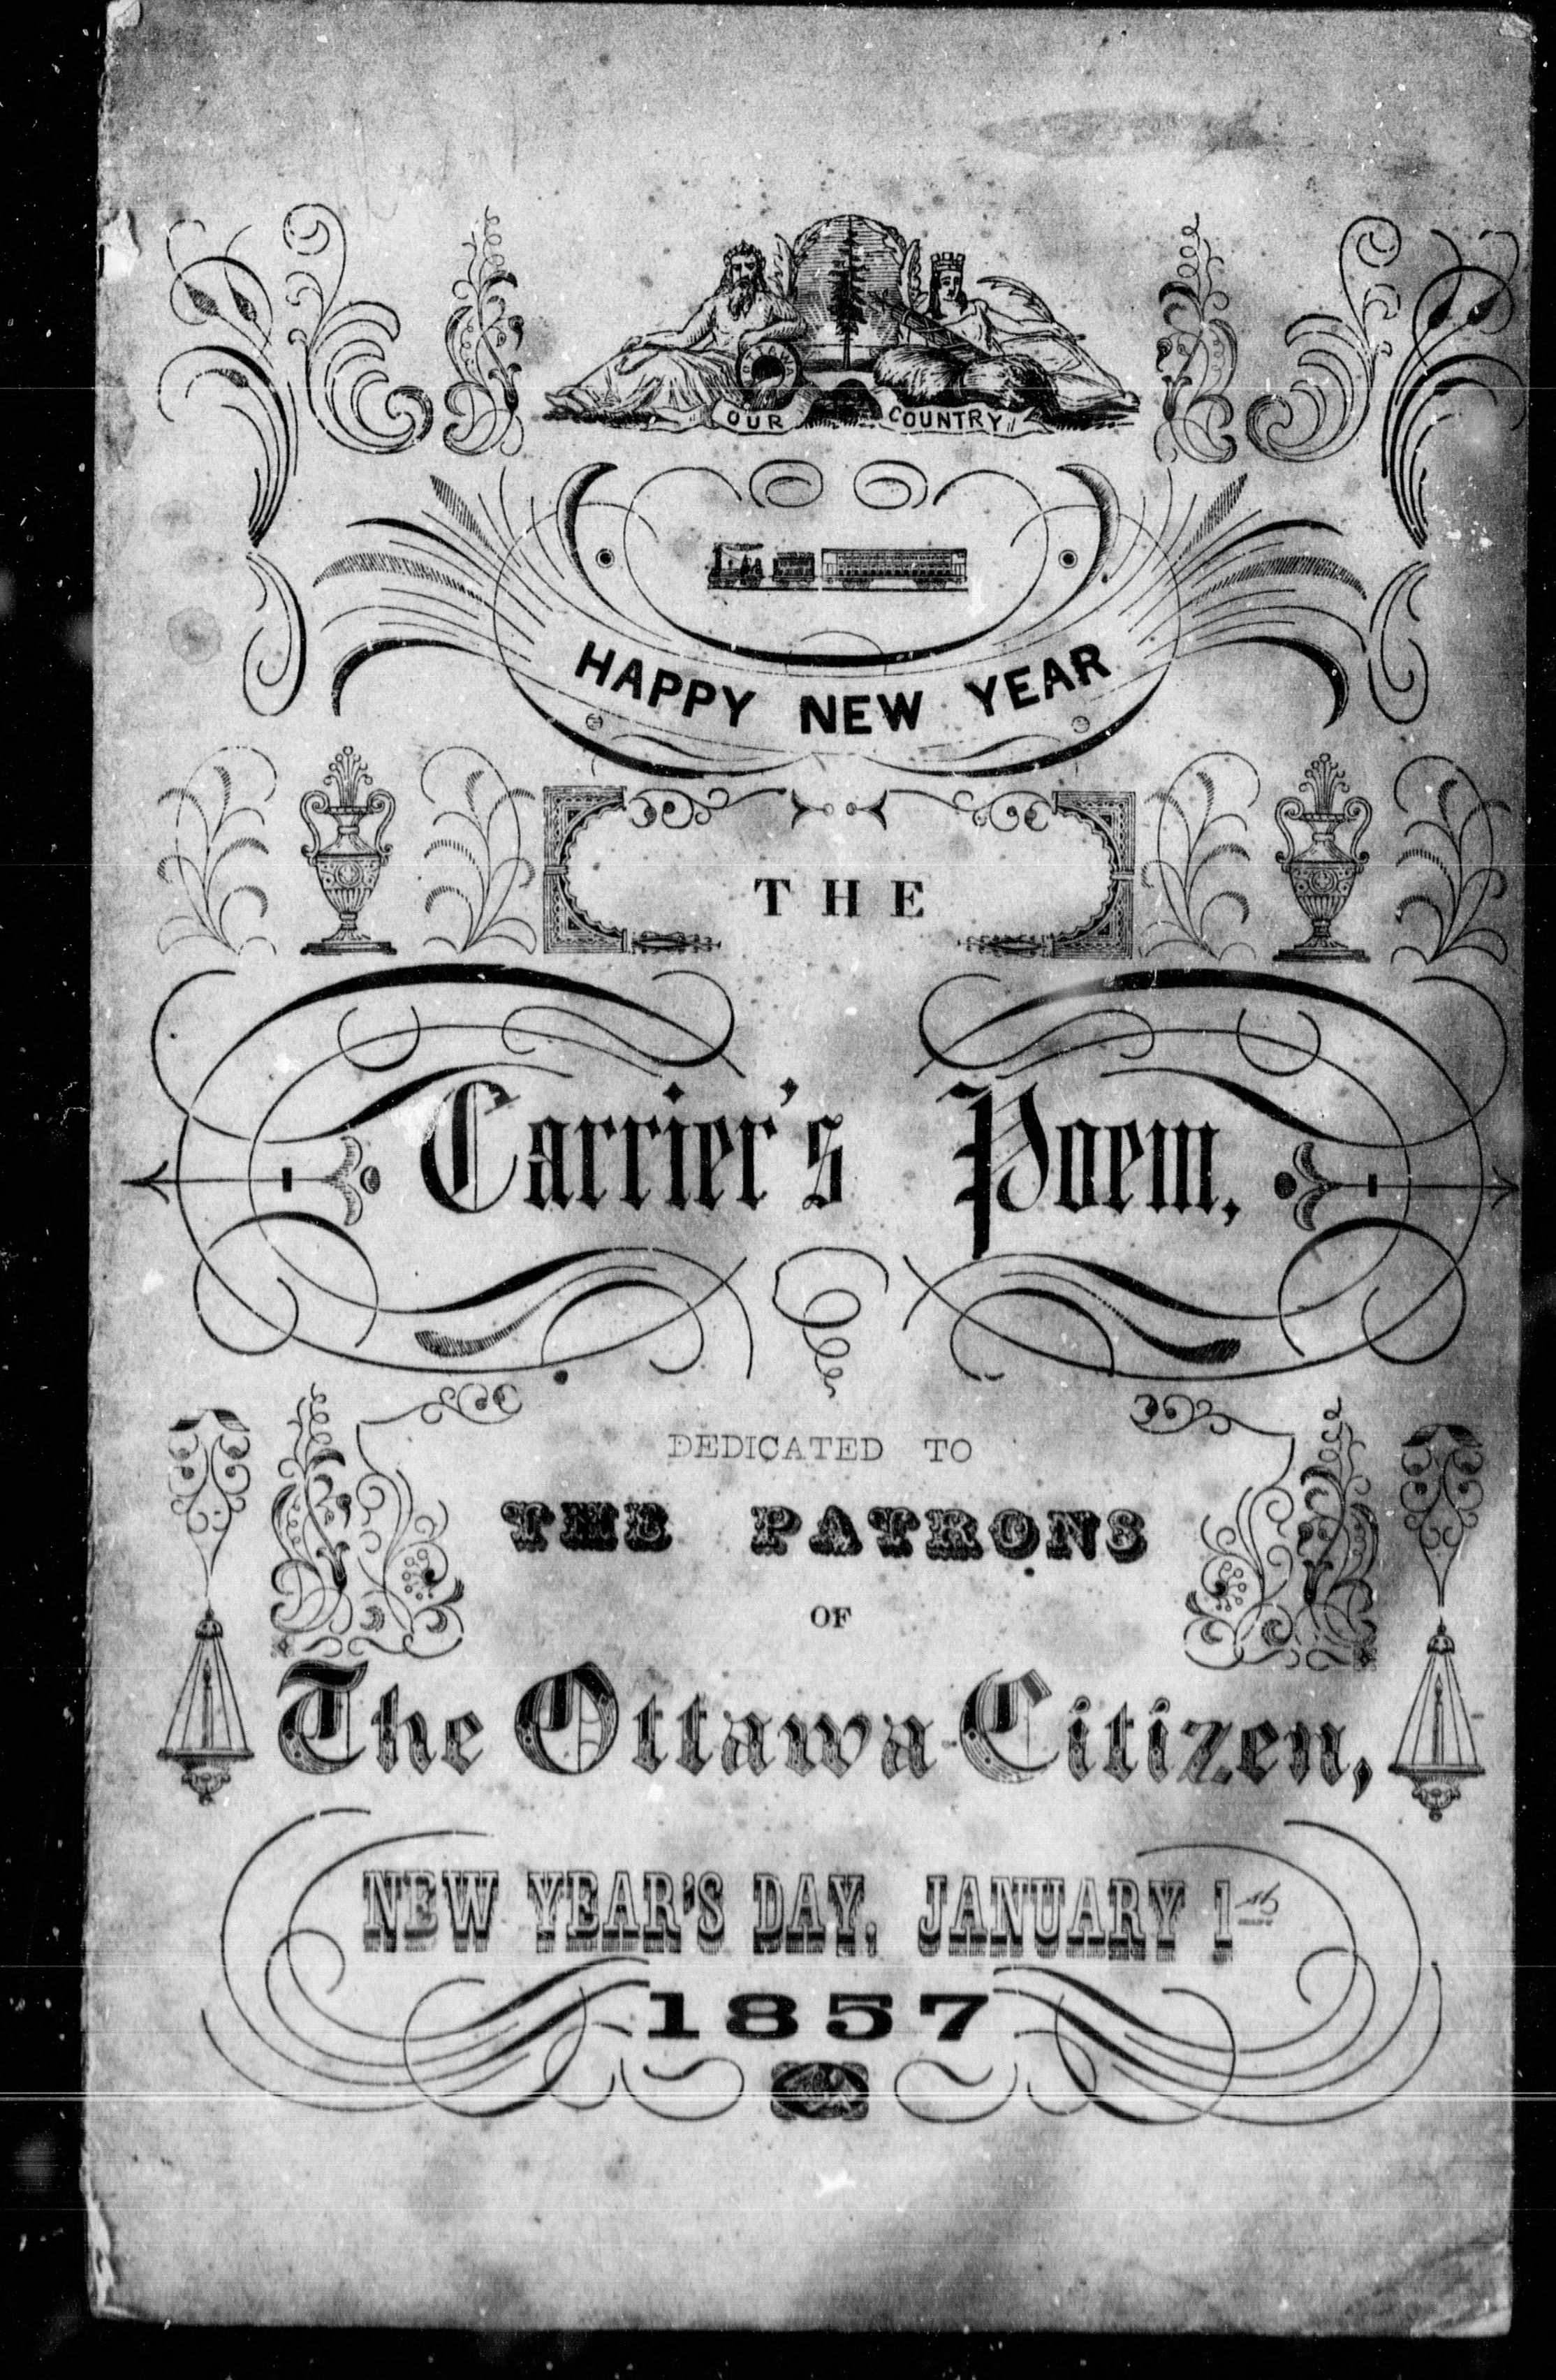 OTTAWA
OUR COUNTRY
HAPPY NEW YEAR
THE
Carrier's Poem,
DEDICATED TO
THE PATRONS
OF
The Ottawa Citizen,
NEW YEAR'S DAY, JANUARY 1st
1857